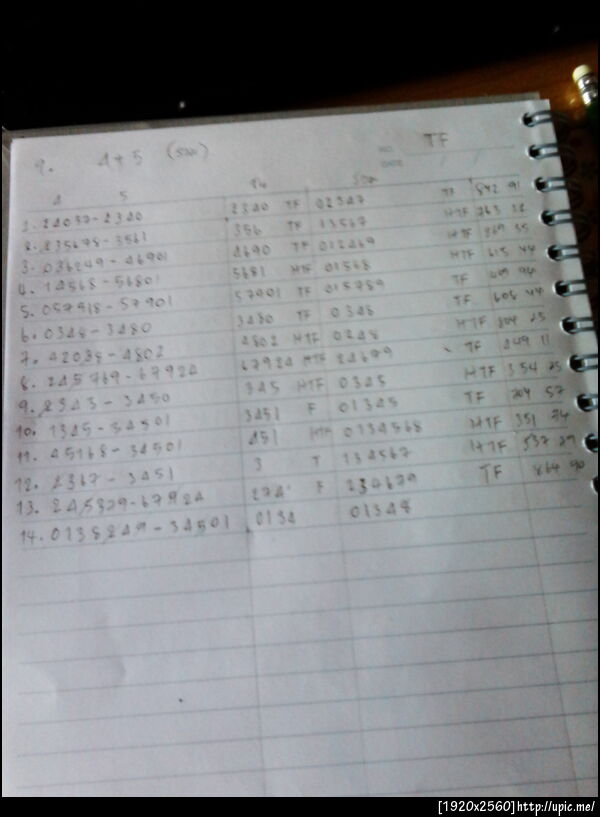 9. 4+5 (รวม) NO. TF
DATE / /
4 5 รวม
1. 24037-2340 2340 TF 02347 TF 842 91
2. 235678-3561 356 TF 13567 HTF 263 22
3. 036249-46901 4690 TF 012469 HTF 269 35
4. 14568-56801 5681 HTF 01568 HTF 615 44
5. 057918-57901 57901 TF 015789 TF 94
6. 0348-3480 3480 TF 0348 TF 608 44
7. 42038-4802 4802 HTF 0248 HTF 804 25
8. 245769-67924 67924 HTF 24679 TF 449 11
9. 2343-3450 345 HTF 0345 HTF 354 25
10. 1345-34501 3451 F 01345 TF 204 57
11. 45168-34501 451 HTF 0134568 HTF 351 34
12. 2367-3451 3 T 134567 HTF 537 29
13. 245879-67924 274 F 234679 TF 864 90
14. 0138249-34501 0134 01348
[1920x2560]http://upic.me/